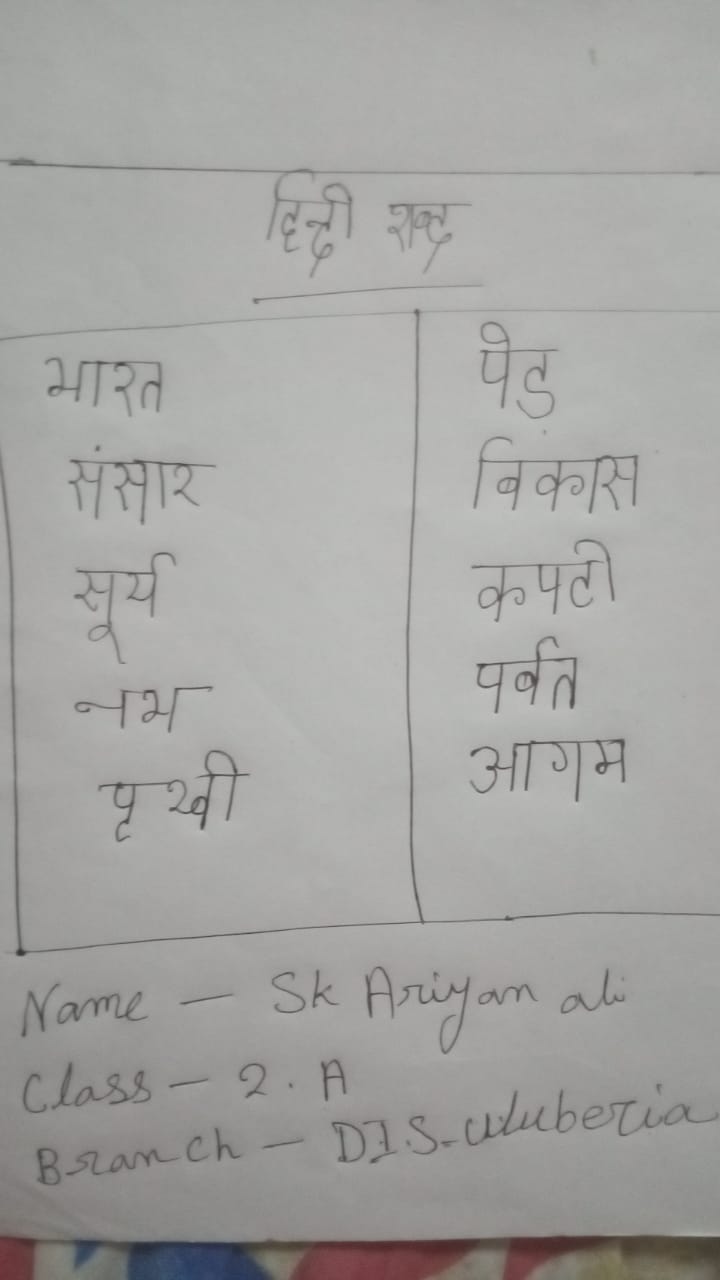 हिन्दी शब्द
भारत
संसार
सूर्य
नभ
पृथ्वी
पेड़
विकास
कपटी
पर्वत
आगम
Name — Sk Ariyan ali
Class — 2. A
Branch — D.I.S. uluberia